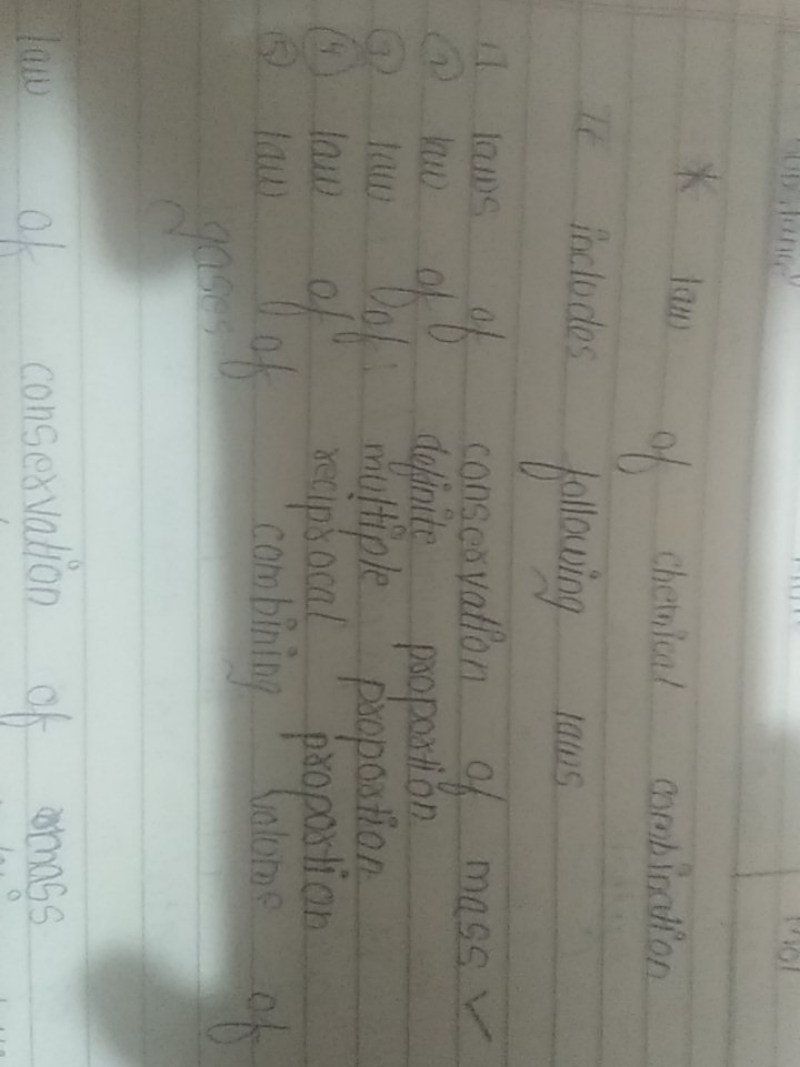 * law of chemical combination
It includes following laws
1] laws of conservation of mass ✓
② law of definite proportion
③ law of multiple proportion
④ law of reciprocal proportion
⑤ law of combining volume of
gases
law of conservation of mass